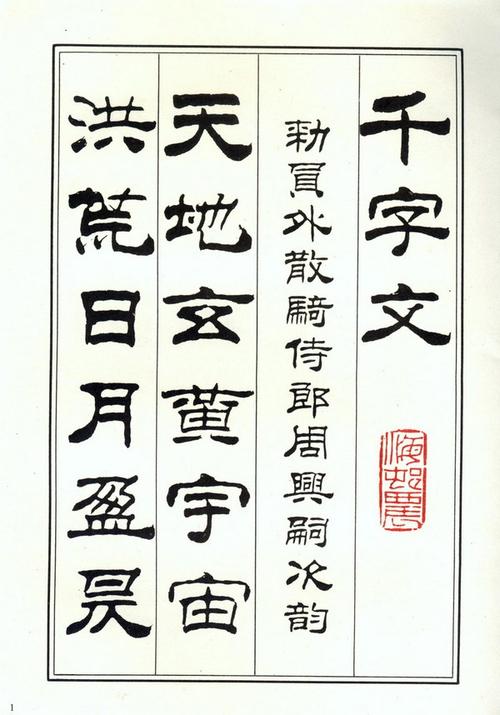 千字文
勅員外散騎侍郎周興嗣次韵
天地玄黄宇宙
洪荒日月盈昃
1